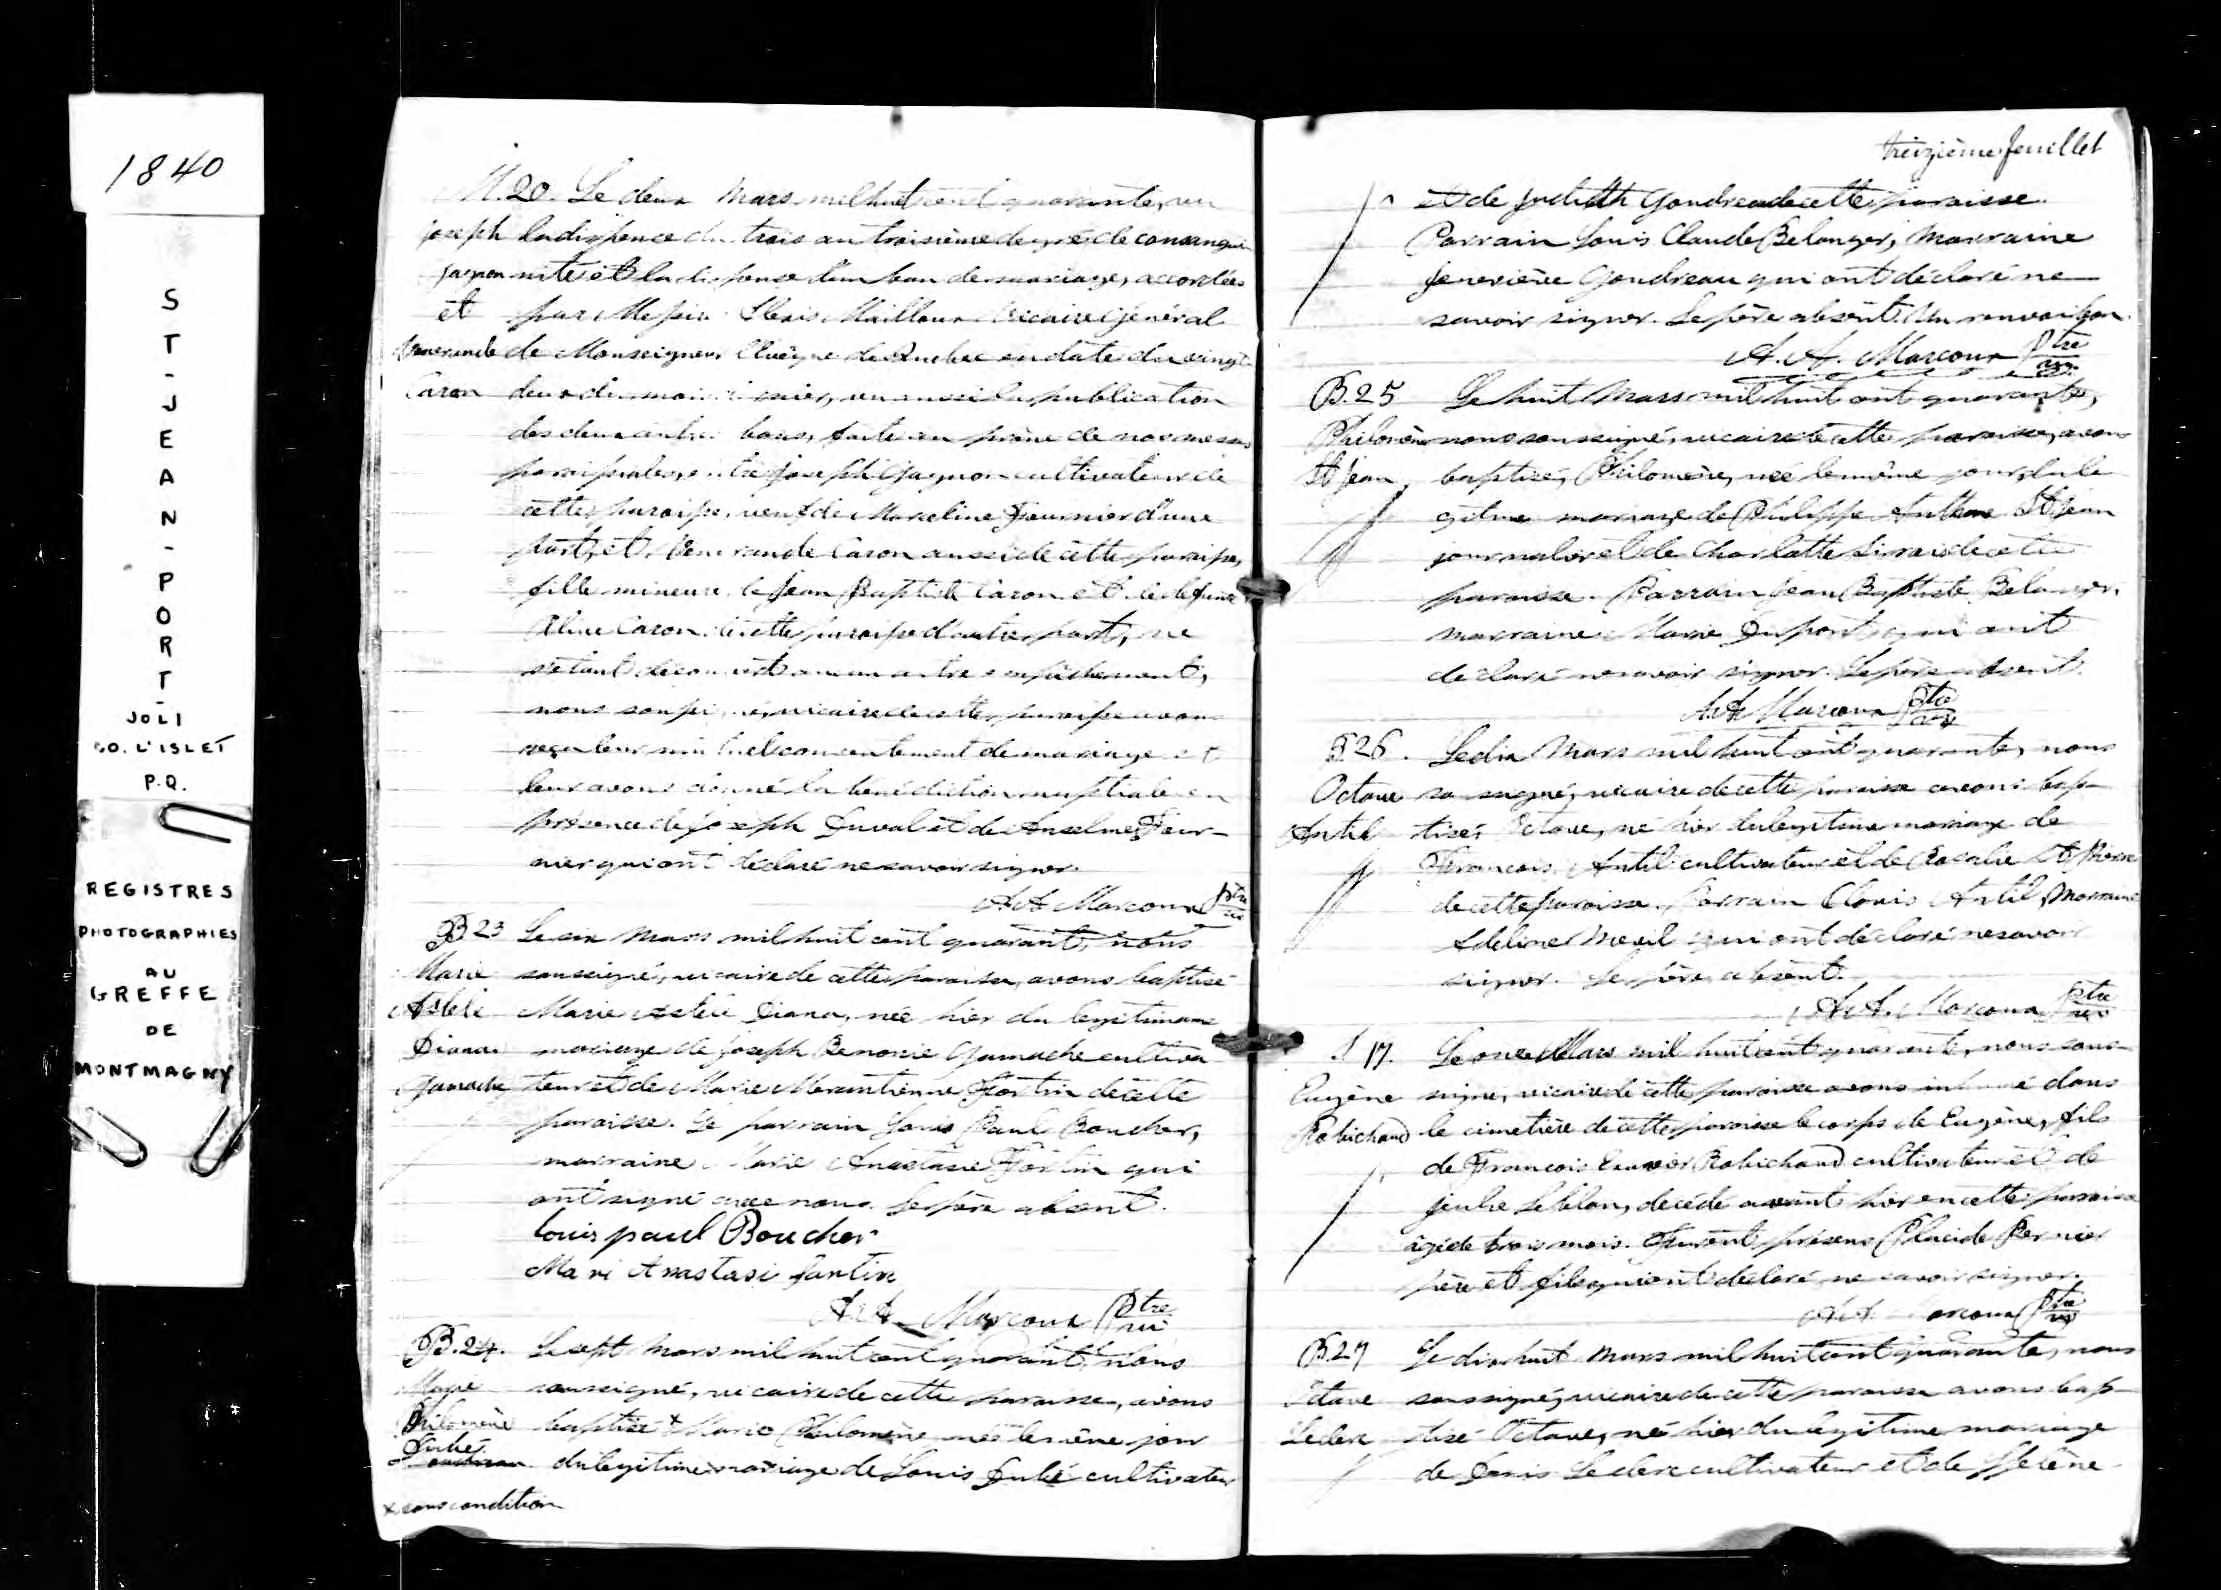 1840
S
T
-
J
E
A
N
-
P
O
R
T
-
JOLI
CO. L'ISLET
P.Q.
REGISTRES
PHOTOGRAPHIES
AU
GREFFE
DE
MONTMAGNY
M.20. Le deux Mars mil huit cent quarante, vu
Joseph la dispence du trois au troisième degré de consangui-
Gagnon nité et la dispense d'un ban de mariage, accordées
et par Alexis Mailloux Vicaire Général
Vénérande de Monseigneur l'Evêque de Quebec en date du vingt
Caron deux du mois, vu aussi la publication
des deux autres bans, faite au prône de nos messes
paroissiales, entre Joseph Gagnon cultivateur de
cette paroisse, veuf de Marceline Fournier d'une
part, et Vénérande Caron aussi de cette paroisse,
fille mineure de Jean Baptiste Caron et de défunte
Caron de cette paroisse d'autre part, ne
s'étant découvert aucun autre empêchement,
nous soussigné, vicaire de cette paroisse avons
reçu leur mutuel consentement de mariage et
leur avons donné la bénédiction nuptiale en
présence de Joseph Duval et de Anselme Four-
nier qui ont déclaré ne savoir signer.
A.A. Marcoux Ptre vic
B 23 Le six Mars mil huit cent quarante, nous
Marie soussigné, vicaire de cette paroisse, avons baptisé
Astéle Marie Diana, née hier du légitime
Diana mariage de Joseph Gamache cultiva
Gamache teur et de Marie Fortin de cette
paroisse. Le parrain Louis Paul Boucher,
marraine Marie Anastasie Fortin qui
ont signé avec nous. Le père absent.
Louis paul Boucher
Mari Anastasi fortin
A.A. Marcoux Ptre vic
B.24. Le sept Mars mil huit cent quarante, nous
Marie soussigné, vicaire de cette paroisse, avons
Philomène baptisé x Marie Philomène née le même jour
Dubé du légitime mariage de Louis Dubé cultivateur
x sous condition
treizième feuillet
et de Judith Goudreau de cette paroisse.
Parrain Louis Claude Belanger, Marraine
Genevière Goudreau qui ont déclaré ne
savoir signer. Le père absent. Un renvoi bon.
A.A. Marcoux Ptre vic
B.25 Le huit Mars mil huit cent quarante,
Philomène nous soussigné, vicaire de cette paroisse, avons
St Jean, baptisé, Philomène, née le même jour, du lé
gitime mariage de Philippe St Jean
journalier et de Charlotte de cette
paroisse. Parrain Jean Baptiste Belanger,
marraine Marie Dupont, qui ont
déclaré ne savoir signer. Le père absent.
A.A. Marcoux Ptre vic
B.26. Le dix Mars mil huit cent quarante, nous
Octave soussigné, vicaire de cette paroisse avons bap-
Antil tisé, Octave, né hier du légitime mariage de
Francois Antil cultivateur et de Rosalie St Pierre
de cette paroisse. Parrain Clovis Antil, Marraine
Adeline qui ont déclaré ne savoir
signer. Le père absent.
A.A. Marcoux Ptre vic
S 17. Le onze Mars mil huit cent quarante, nous sous-
Eugène signé, vicaire de cette paroisse avons inhumé dans
Robichaud le cimetière de cette paroisse le corps de Eugène, fils
de Francois Robichaud cultivateur et de
Julie Leblon, décédé avant hier en cette paroisse
âgé de trois mois. Furent présens Placide Bernier
père et fils qui ont déclaré ne savoir signer.
A.A. Marcoux Ptre vic
B.27 Le dix huit Mars mil huit cent quarante, nous
Octave soussigné, vicaire de cette paroisse avons bap-
Leclerc tisé Octave, né hier du légitime mariage
de Denis Leclerc cultivateur et de Helène